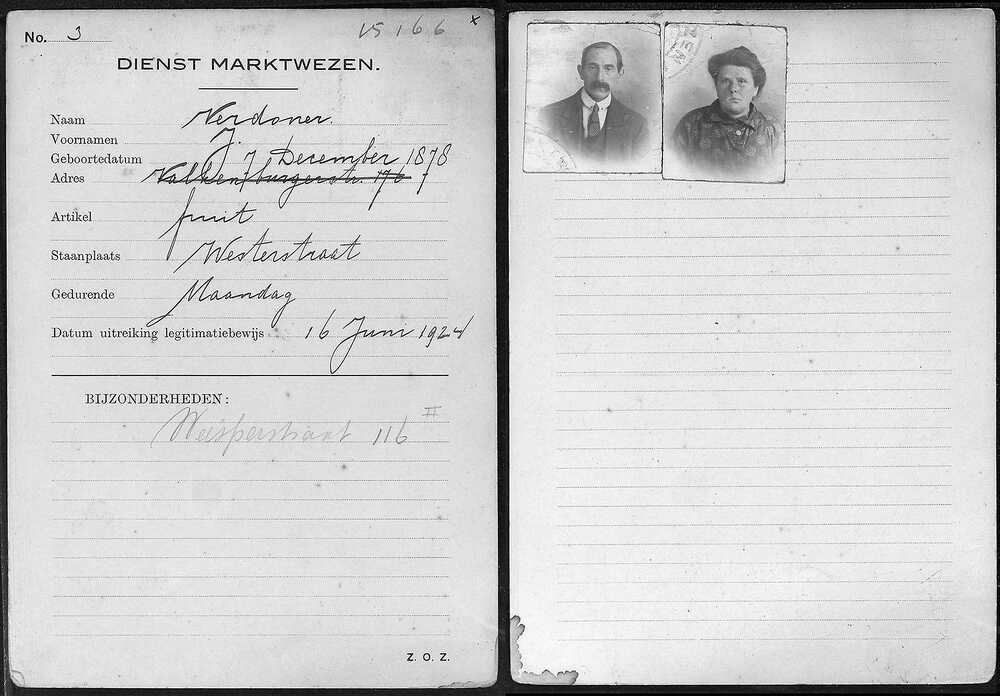 No. 3 15166 x
DIENST MARKTWEZEN.
Naam Verdoner.
Voornamen J.
Geboortedatum 7 December 1878
Adres Valkenburgerstr. 176
Artikel fruit
Staanplaats Westerstraat
Gedurende Maandag
Datum uitreiking legitimatiebewijs 16 Juni 1924
BIJZONDERHEDEN:
Weesperstraat 116 II
Z. O. Z.